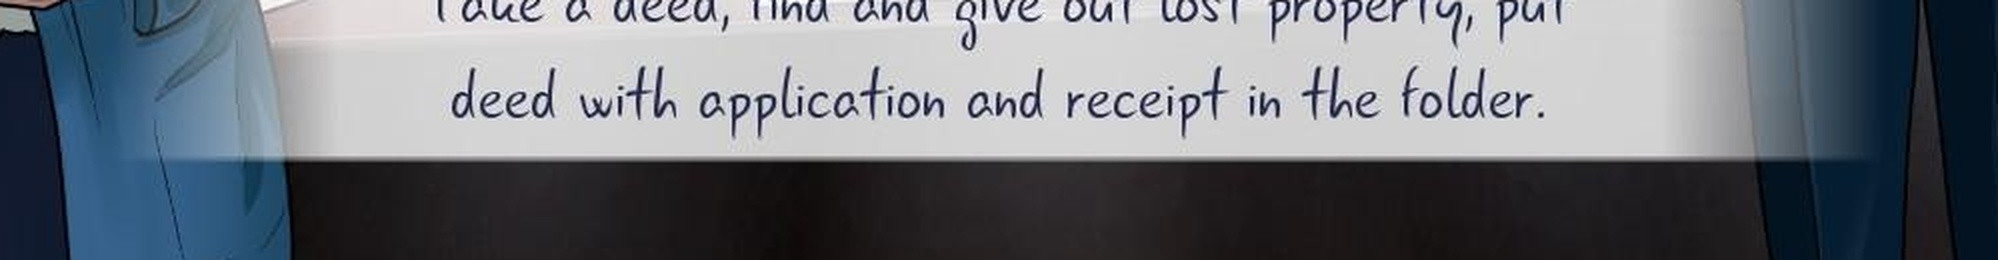 Take a deed, find and give out lost property, put
deed with application and receipt in the folder.